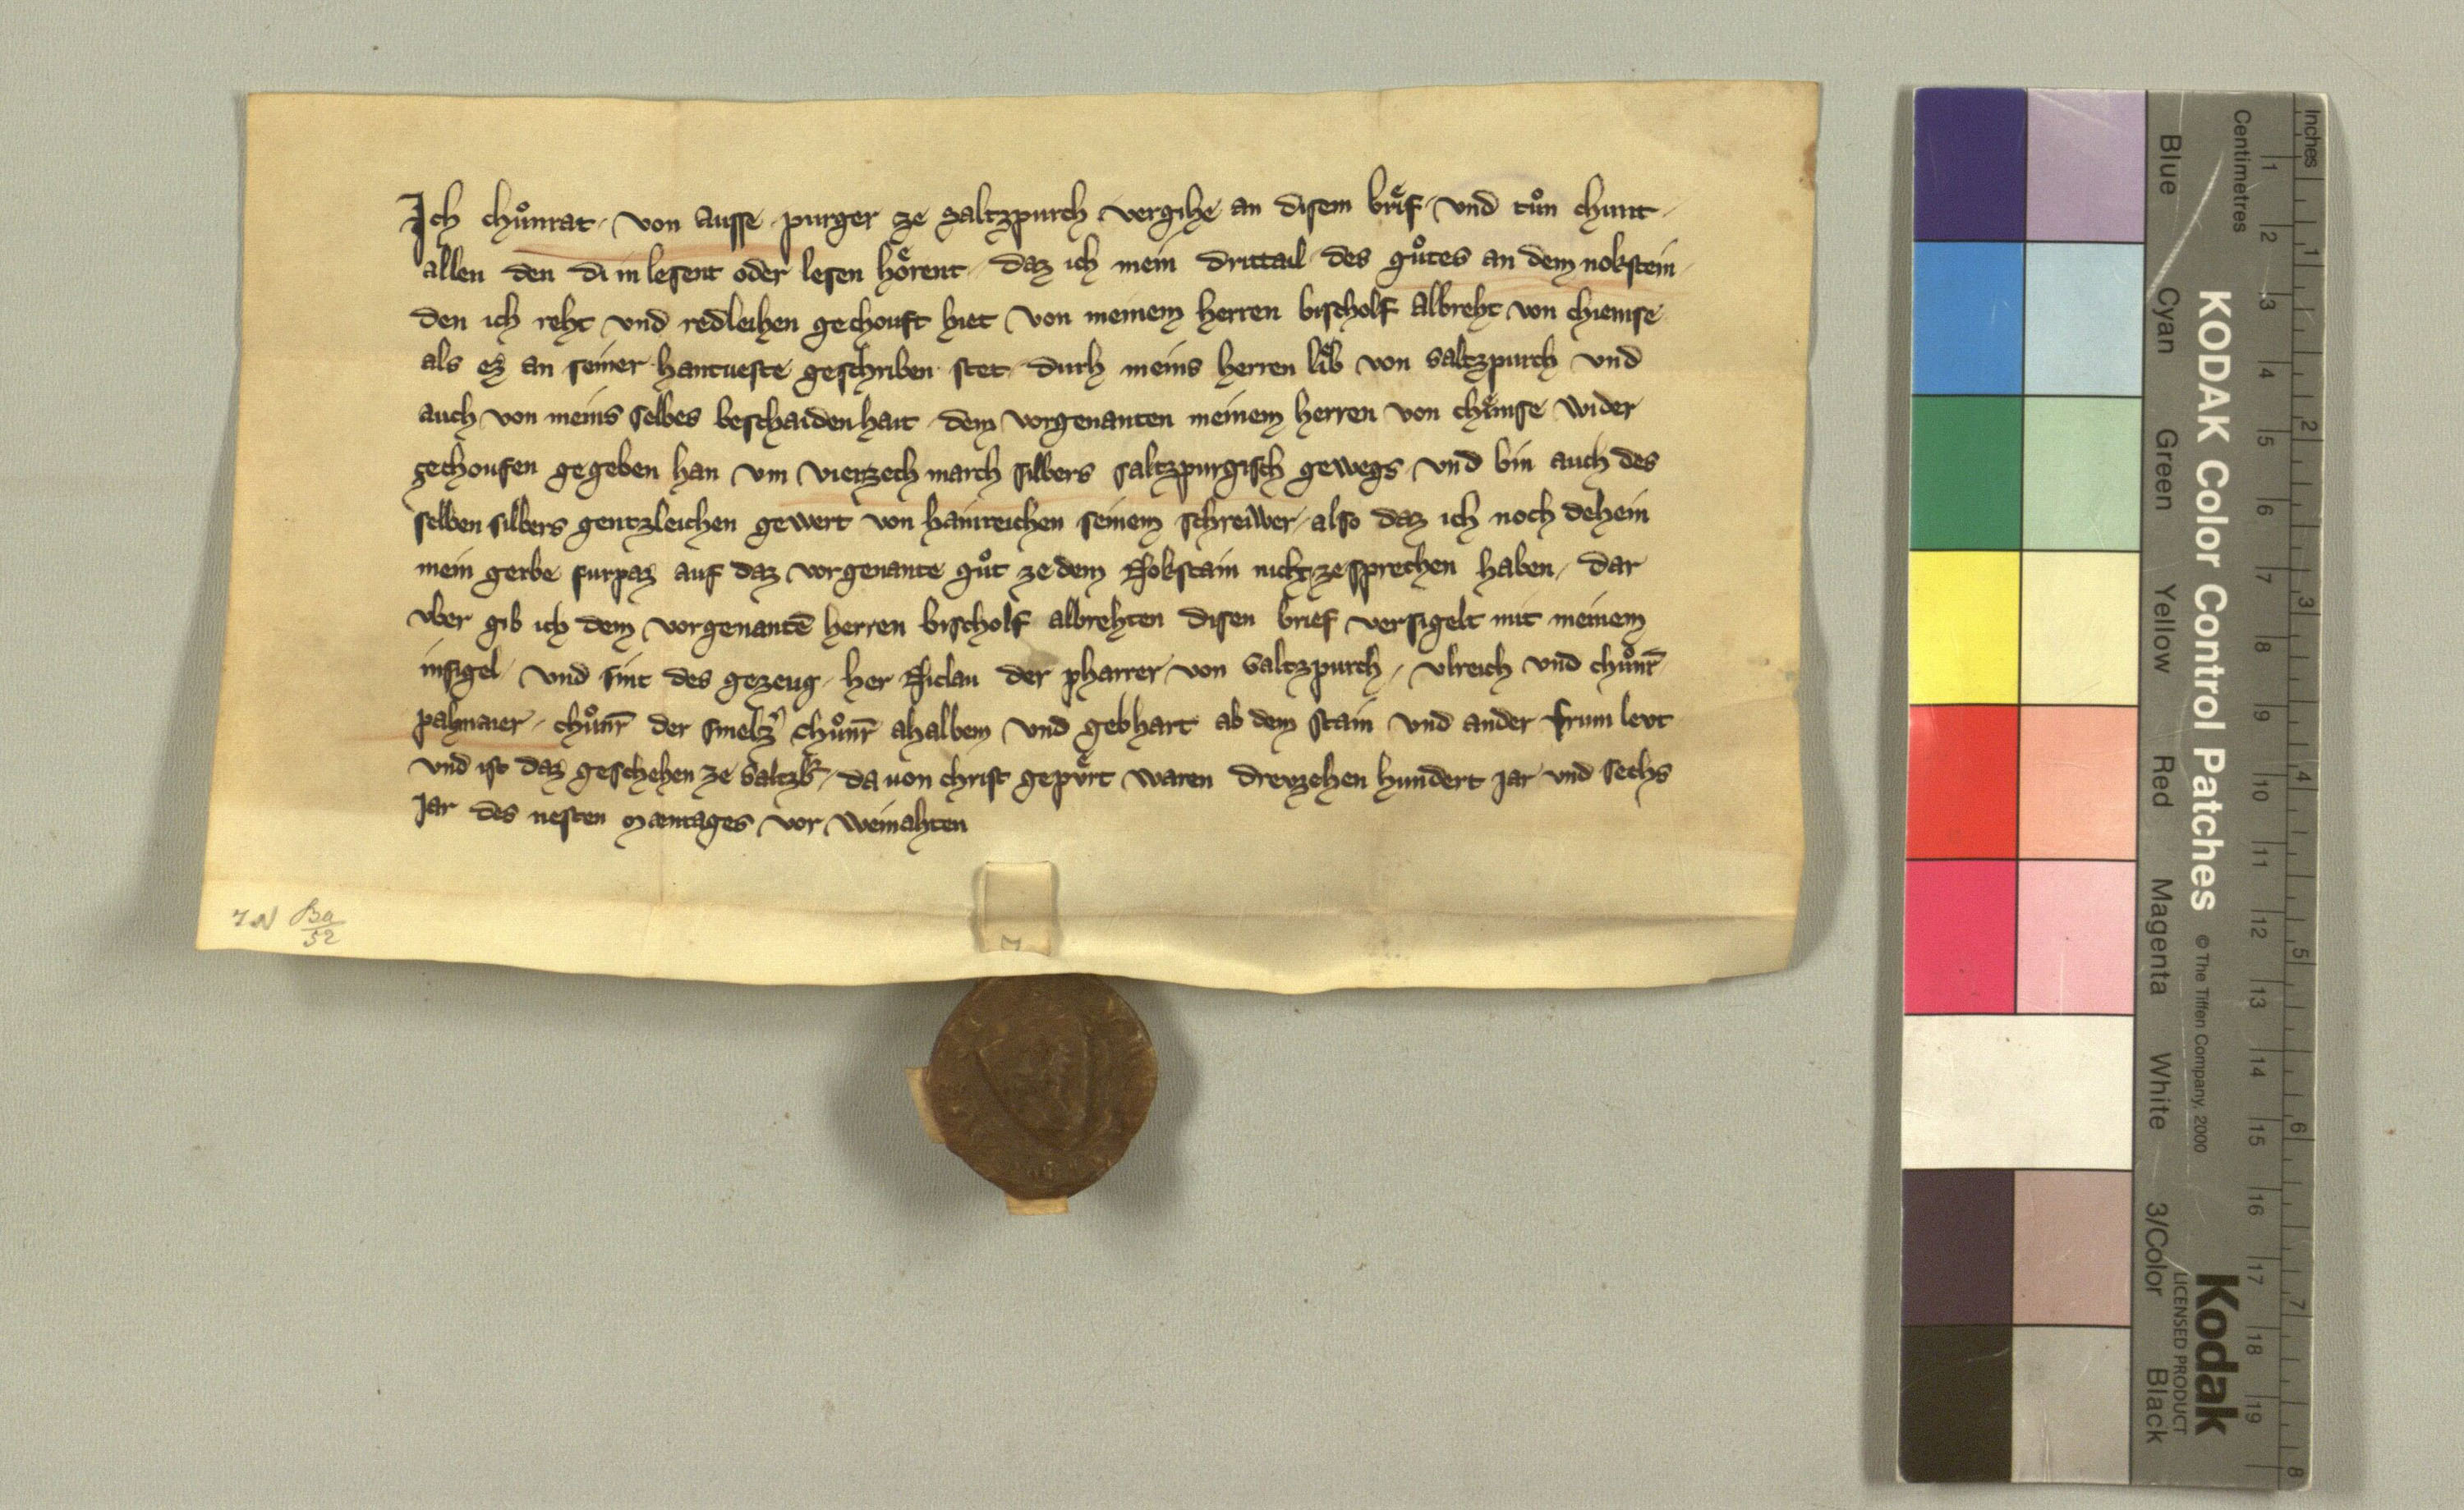 Ich chůnrat von Ausse purger ze Saltzpurch vergihe an disem brief und tůn chunt
allen den di in lesent oder lesen hoͤrent daz ich mein drittail des gůtes an dem nokstein
den ich reht und redleihen gechouft hiet von meinem herren bischolf Albreht von chiemse
als ez an seiner hantueste geschriben stet durh meins herren lib von Saltzpurch und
auch von meins selbes beschaidenhait dem vorgenanten meinem herren von chiemse wider
zechoufen gegeben han um vierzech march silbers Saltzpurgisch gewegs und bin auch des
selben silbers gentzleichen gewert von hainreichen seinem schreiber also daz ich noch dehein
mein gerbe furpaz auf daz vorgenante gůt ze dem Nokstain nicht ze sprechen haben dar
uber gib ich dem vorgenantē herren bischolf albrehten disen brief versigelt mit meinem
insigel und sint des gezeug her Niclau der pharrer von Saltzpurch ulreich und chůnr̄
palmaier chůnr̄ der smelz͛ chůnr̄ ahalbem und gebhart ab dem stain und ander frum levt
und ist daz geschehen ze Saltzb̄ da von christ gepuͤrt waren drevzehen hundert jar und sechs
jar des nesten mæntages vor weinahten
IN Ba/52
KODAK Color Control Patches © The Tiffen Company, 2000
Kodak
LICENSED PRODUCT
Blue Cyan Green Yellow Red Magenta White 3/Color Black
Centimetres 1 2 3 4 5 6 7 8 9 10 11 12 13 14 15 16 17 18 19
Inches 1 2 3 4 5 6 7 8